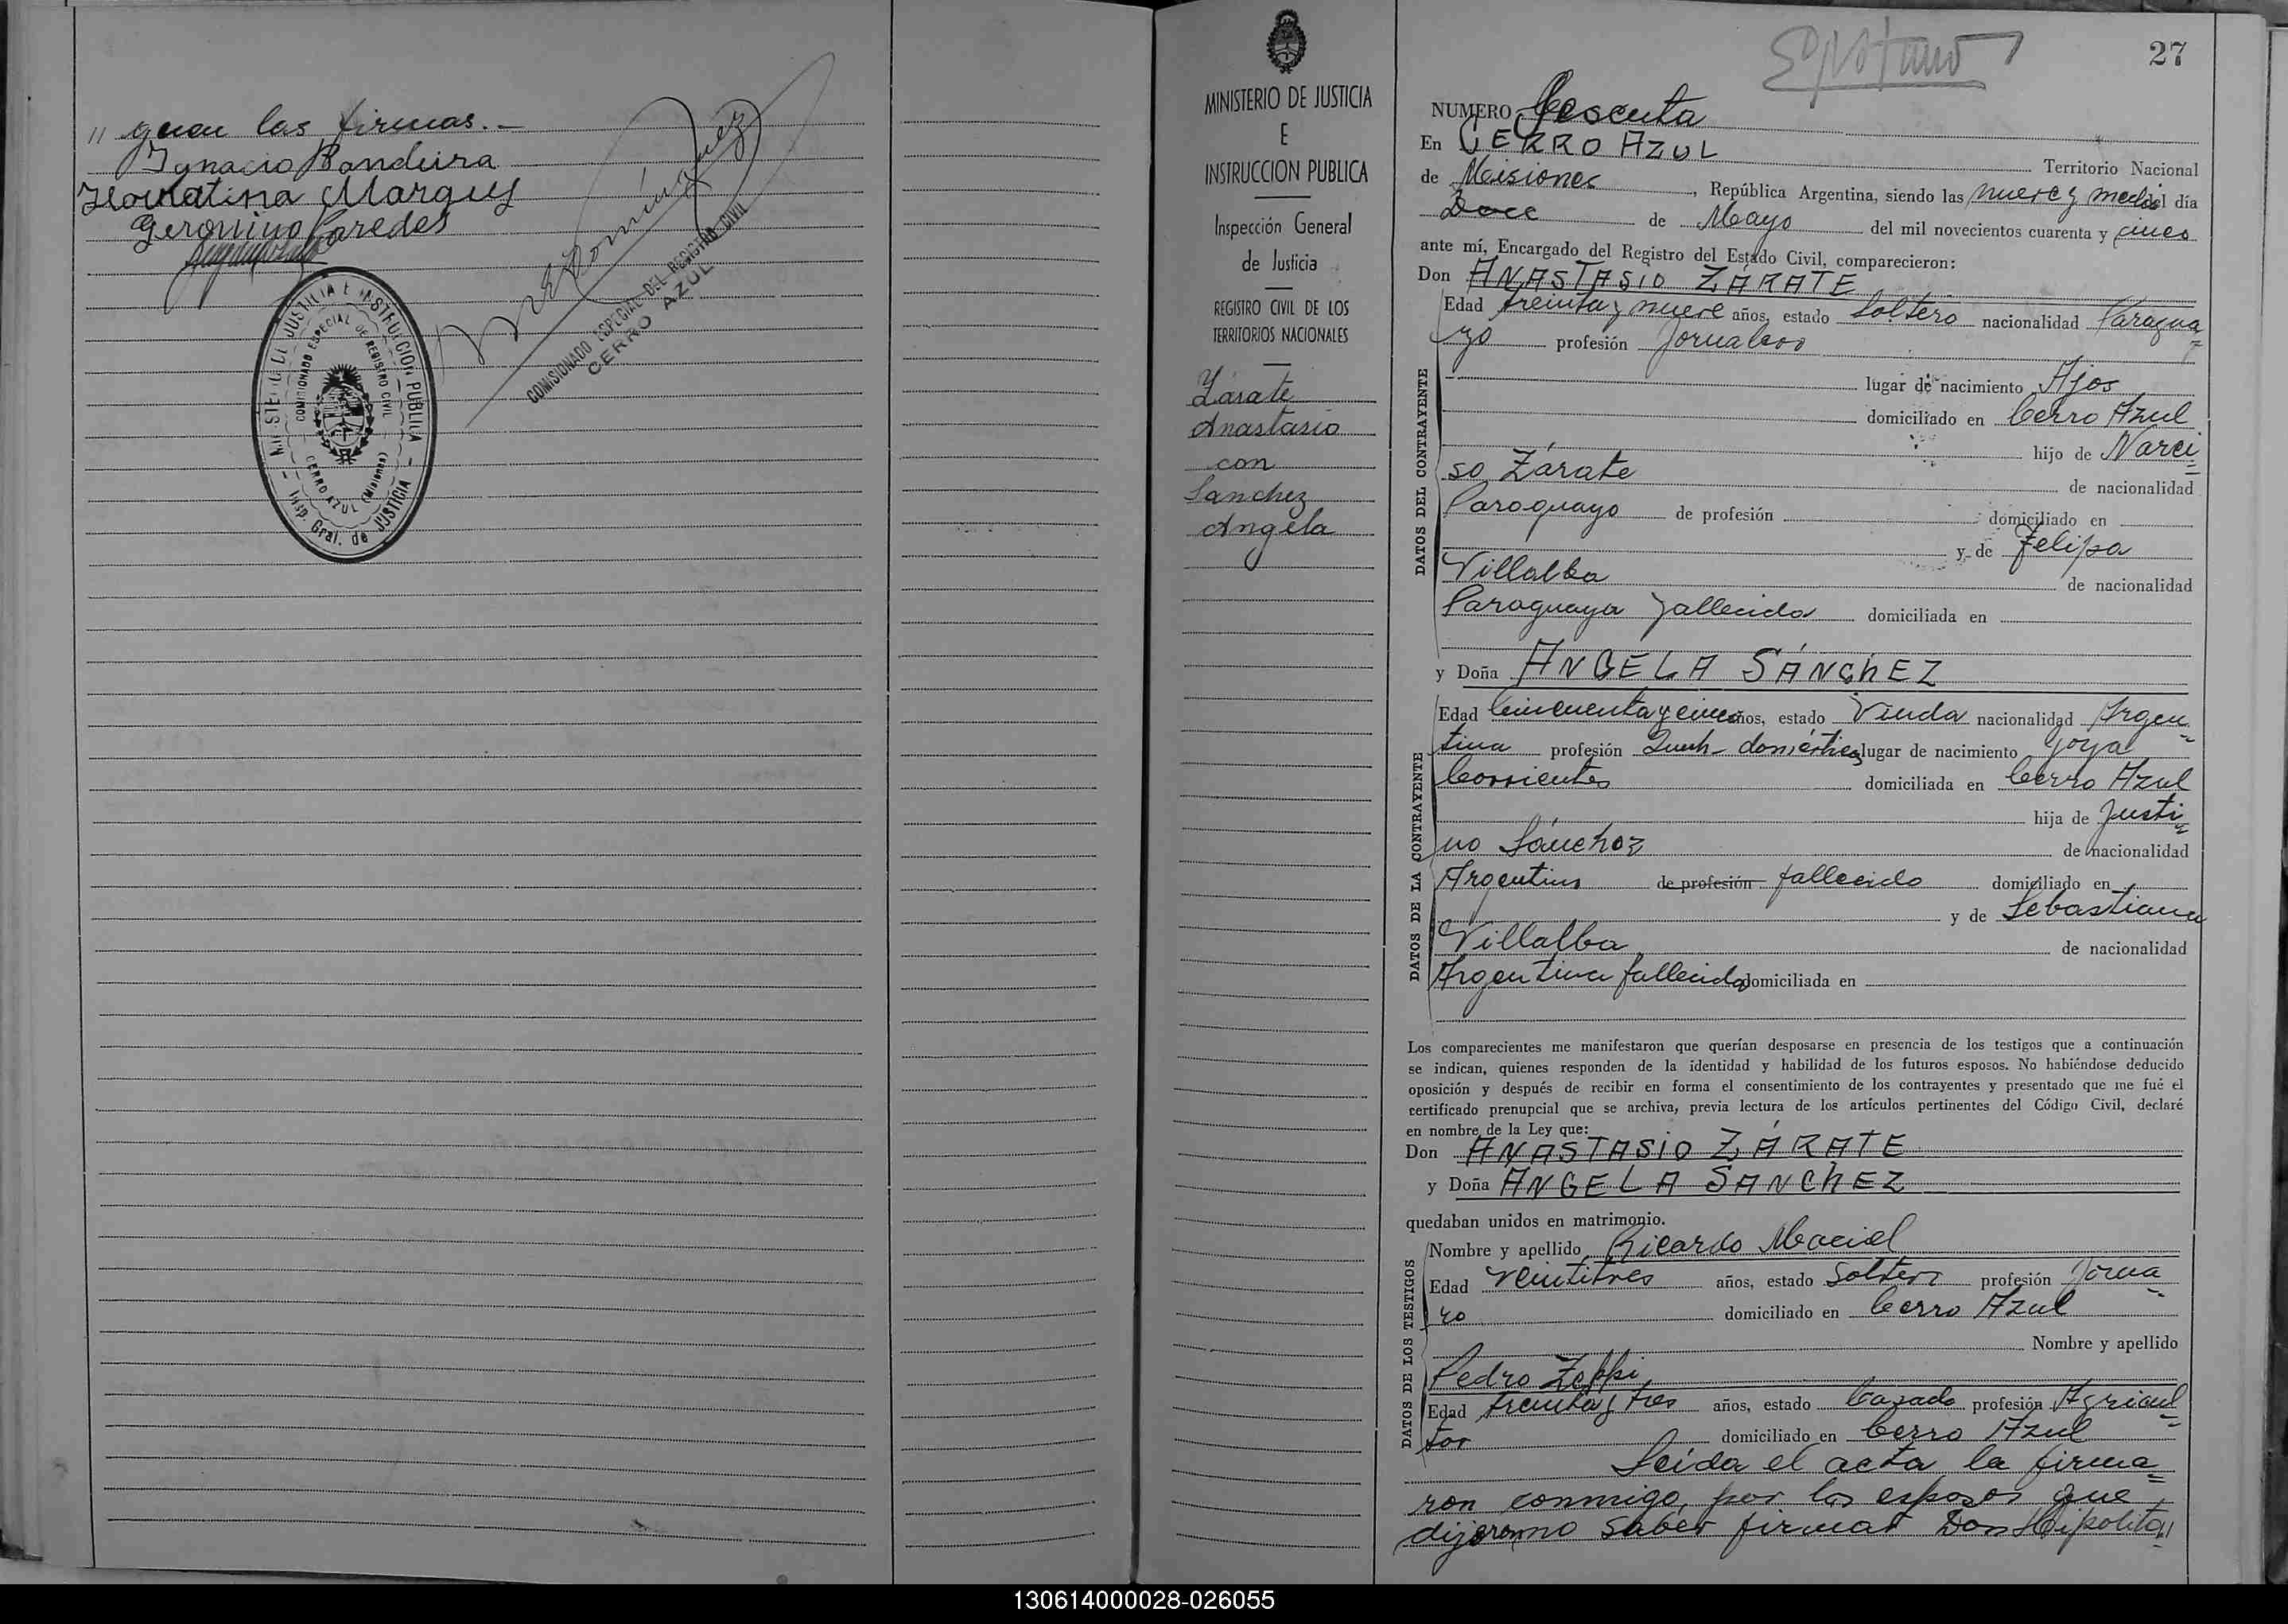 // guen las firmas.-
Ignacio Bandeira
Geronimo Paredes
COMISIONADO ESPECIAL DEL REGISTRO CIVIL
CERRO AZUL
MINISTERIO DE JUSTICIA E INSTRUCCION PUBLICA
COMISIONADO ESPECIAL DE REGISTRO CIVIL
CERRO AZUL (Misiones)
- Insp. Gral. de JUSTICIA -
MINISTERIO DE JUSTICIA
E
INSTRUCCION PUBLICA
Inspección General
de Justicia
REGISTRO CIVIL DE LOS
TERRITORIOS NACIONALES
Zárate
Anastasio
con
Sanchez
Angela
27
NUMERO Sesenta
En CERRO AZUL Territorio Nacional
de Misiones, República Argentina, siendo las nueve y media del día
Doce de Mayo del mil novecientos cuarenta y cinco
ante mí, Encargado del Registro del Estado Civil, comparecieron:
Don ANASTASIO ZÁRATE
DATOS DEL CONTRAYENTE
Edad treinta y nueve años, estado Soltero nacionalidad Paragua=
yo profesión Jornalero
lugar de nacimiento Ajos
domiciliado en Cerro Azul
hijo de Narci=
so Zárate de nacionalidad
Paraguayo de profesión domiciliado en
y de Felipa
Villalba de nacionalidad
Paraguaya fallecida domiciliada en
y Doña ANGELA SÁNChEZ
DATOS DE LA CONTRAYENTE
Edad Cincuenta y cinco años, estado Viuda nacionalidad Argen=
tina profesión Queh. domésticos lugar de nacimiento Goya
Corrientes domiciliada en Cerro Azul
hija de Justi=
no Sánchez de nacionalidad
Argentino de profesión fallecido domiciliado en
y de Sebastiana
Villalba de nacionalidad
Argentina fallecida domiciliada en
Los comparecientes me manifestaron que querían desposarse en presencia de los testigos que a continuación
se indican, quienes responden de la identidad y habilidad de los futuros esposos. No habiéndose deducido
oposición y después de recibir en forma el consentimiento de los contrayentes y presentado que me fué el
certificado prenupcial que se archiva, previa lectura de los artículos pertinentes del Código Civil, declaré
en nombre de la Ley que:
Don ANASTASIO ZÁRATE
y Doña ANGELA SANChEZ
quedaban unidos en matrimonio.
DATOS DE LOS TESTIGOS
Nombre y apellido Ricardo Maciel
Edad Veintitres años, estado Soltero profesión Jorna=
ro domiciliado en Cerro Azul
Nombre y apellido
Pedro Zoppi
Edad treinta y tres años, estado Casado profesión Agricul=
tor domiciliado en Cerro Azul
Leída el acta la firma=
ron conmigo, por los esposos que
dijeron no saber firmar Don Hipolito//
130614000028-026055